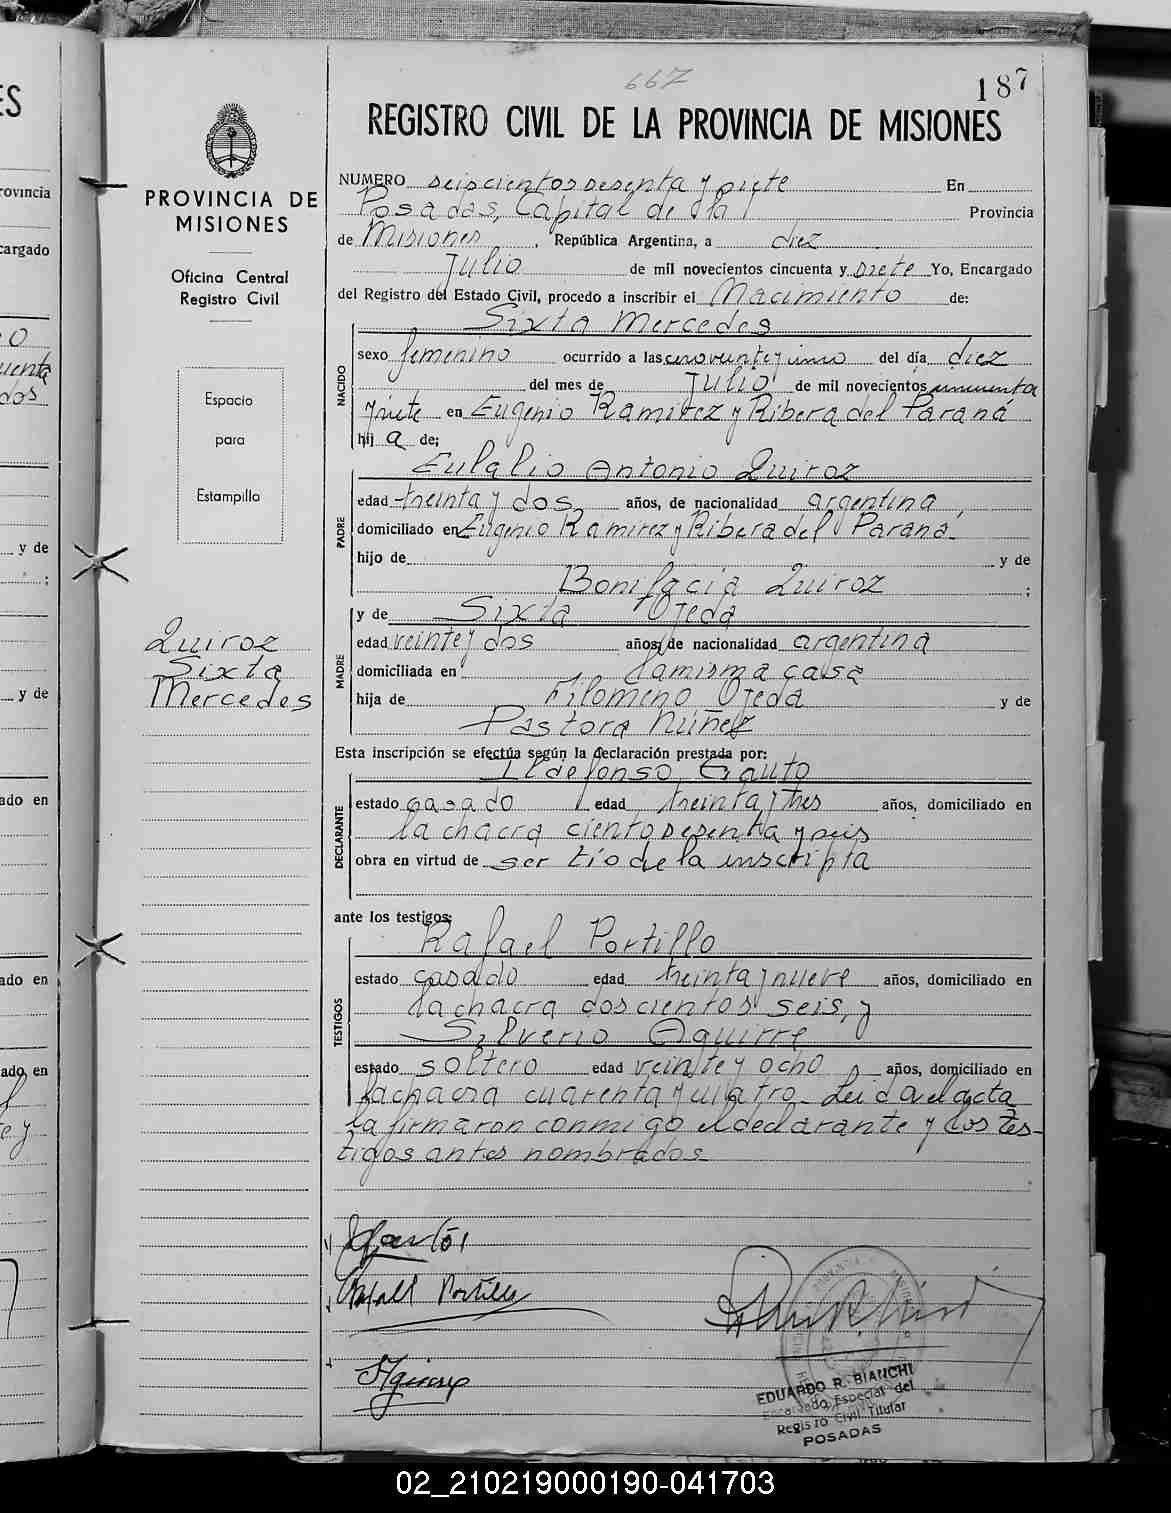 667
187
REGISTRO CIVIL DE LA PROVINCIA DE MISIONES
PROVINCIA DE
MISIONES
Oficina Central
Registro Civil
Espacio
para
Estampilla
Quiroz
Sixta
Mercedes
NUMERO seiscientos sesenta y siete En
Posadas, Capital de la Provincia
de Misiones, República Argentina, a diez
Julio de mil novecientos cincuenta y siete Yo, Encargado
del Registro del Estado Civil, procedo a inscribir el Nacimiento de:
NACIDO
Sixta Mercedes
sexo femenino ocurrido a las cero veinte y uno del día diez
del mes de Julio de mil novecientos cincuenta
y siete en Eugenio Ramirez y Ribera del Paraná
hij a de;
PADRE
Eulalio Antonio Quiroz
edad treinta y dos años, de nacionalidad argentina,
domiciliado en Eugenio Ramirez y Ribera del Paraná
hijo de y de
Bonifacia Quiroz ;
MADRE
y de Sixta Ojeda
edad veinte y dos años, de nacionalidad argentina
domiciliada en la misma casa
hija de Filomeno Ojeda y de
Pastora Núñez
Esta inscripción se efectúa según la declaración prestada por:
DECLARANTE
Ildefonso Gauto
estado casado edad treinta y tres años, domiciliado en
la chacra ciento sesenta y seis
obra en virtud de ser tío de la inscripta
ante los testigos:
TESTIGOS
Rafael Portillo
estado casado edad treinta y nueve años, domiciliado en
la chacra doscientos seis, y
Silverio Aguirre
estado soltero edad veinte y ocho años, domiciliado en
la chacra cuarenta y cuatro. Leida el acta
la firmaron conmigo el declarante y los tes-
tigos antes nombrados
Rafall Portillo
EDUARDO R. BIANCHI
Encargado Especial del
Registro Civil Titular
POSADAS
02_210219000190-041703